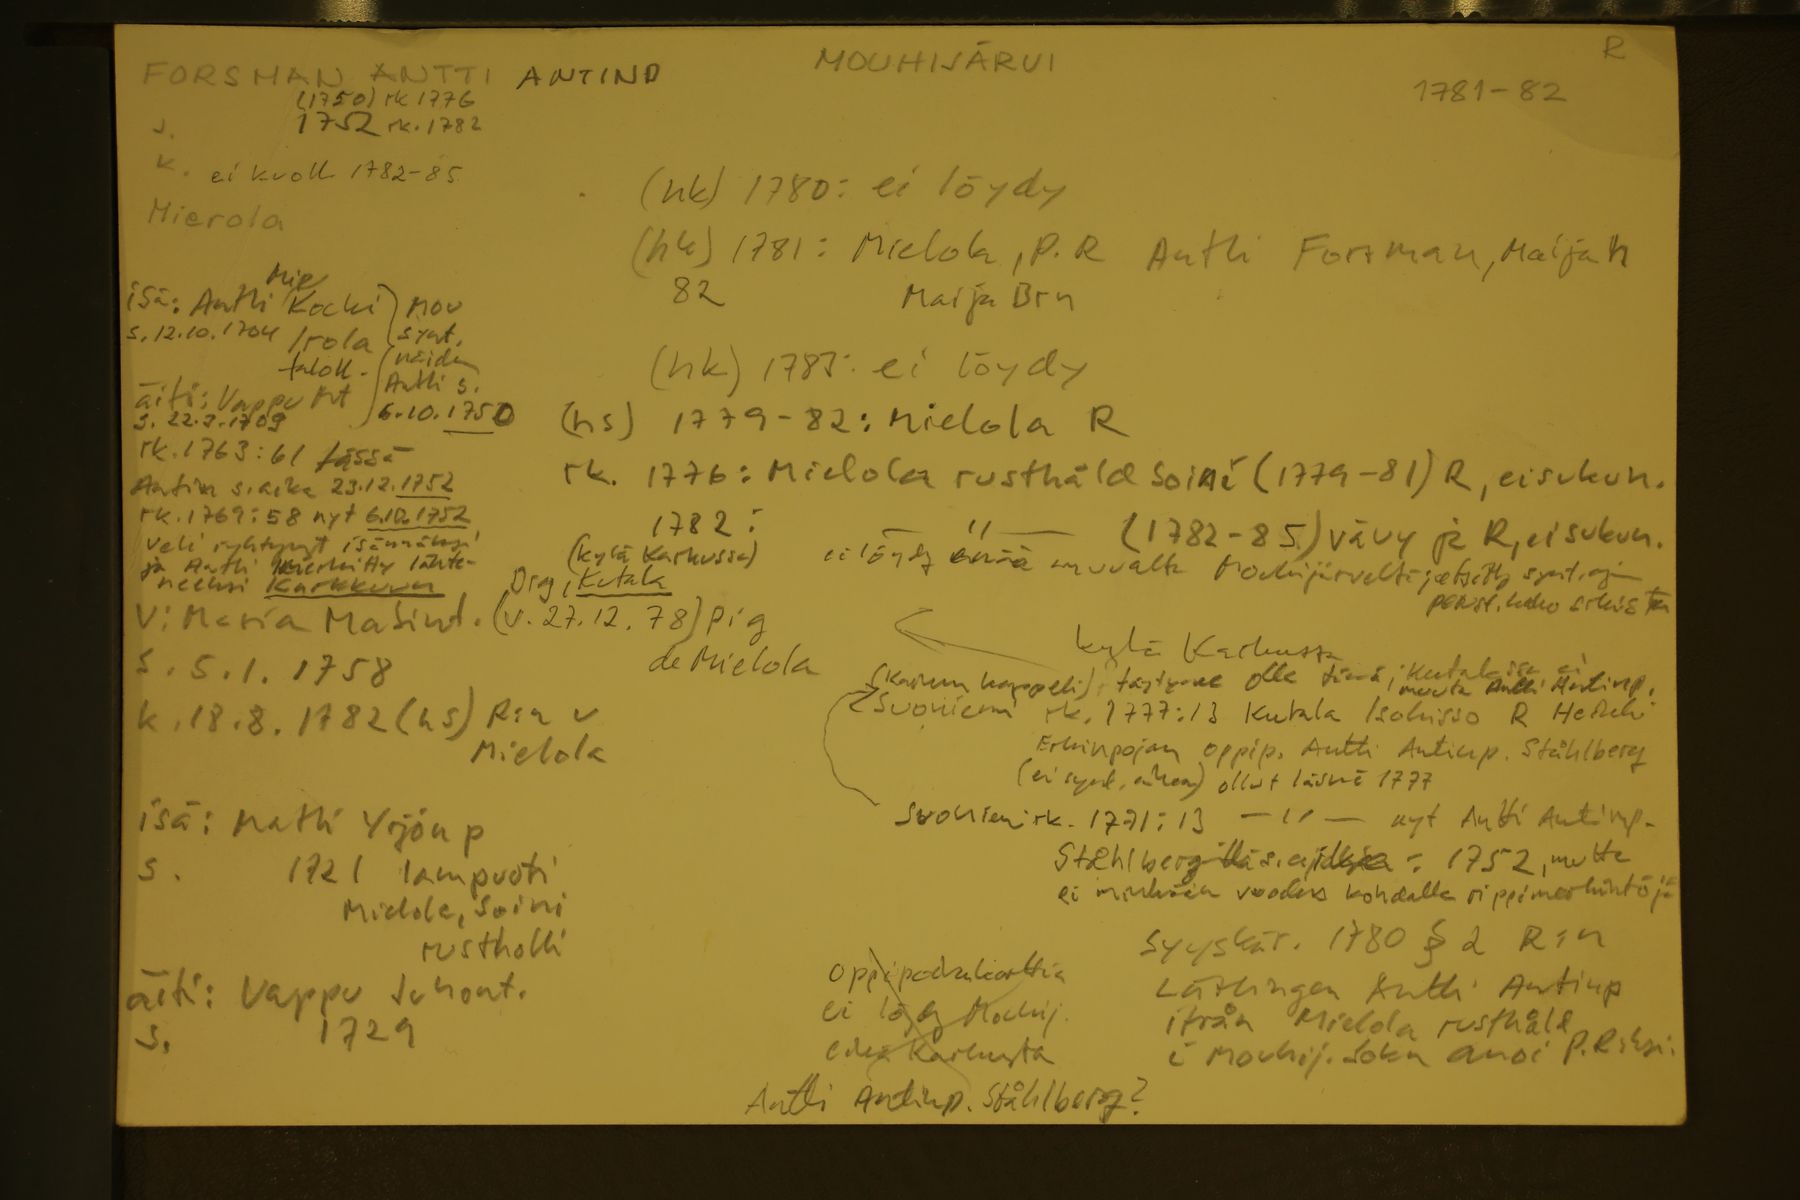 FORSMAN ANTTI ANTINP
MOUHIJÄRVI
R
1781-82
s. (1750) rk 1776
1752 rk. 1782
k. ei kuoll. 1782-85
Mierola
(hk) 1780: ei löydy
(hk) 1781: Mielola, P.R Antti Forsman, Maija h
82 Maija Brn
(hk) 1783: ei löydy
(hs) 1779-82: Mielola R
rk. 1776: Mielola rusthåld Soini (1779-81) R, ei sukun.
1782: —"— (1782-85) vävy ja R, ei sukun.
(kylä Karkussa)
ei löydy muualta Mouhijärveltä; etsitty synt. ajan
perust. koko srk:sta
isä: Antti Kocki
Mie/rola
taloll.
s. 12.10.1704
äiti: Vappu Ant
s. 22.2.1709
Mou
synt.
näiden
Antti s.
6.10.1750
rk. 1763:61 tässä
Antin s.aika 23.12.1752
rk. 1769:58 nyt 6.10.1752
veli ryhtynyt isännäksi
ja Antti merkitty lähte-
neeksi Karkkuun
v: Maria Matint. (v. 27.12.78) pig
Drg, Kutala
de Mielola
s. 5.1.1758
k. 18.8.1782 (hs) R:n v
Mielola
isä: Matti Yrjön p
s. 1721 lampuoti
Mielola, Soini
rustholli
äiti: Vappu Juhont.
s. 1729
kylä Karkussa
(Karkun kappeli) täytynee olla tämä; Kutalassa ei
muuta Antti Antinp.
Suoniemi rk. 1777:13 Kutala Isohisso R Heikki
Erkinpojan oppip. Antti Antinp. Ståhlberg
(ei synt. aikaa) ollut läsnä 1777
Suoniemi rk. 1771:13 —"— nyt Antti Antinp.
Ståhlberg s. 1752, mutta
ei minkään vuoden kohdalla rippimerkintöjä
Syyskär. 1780 § 2 R:n
Lärlingen Antti Antinp
ifrån Mielola rusthåld
i Mouhij. Sokn anoi P.R:ksi.
oppipoikakorttia
ei löydy Mouhij.
eikä Karkusta
Antti Antinp. Ståhlberg?